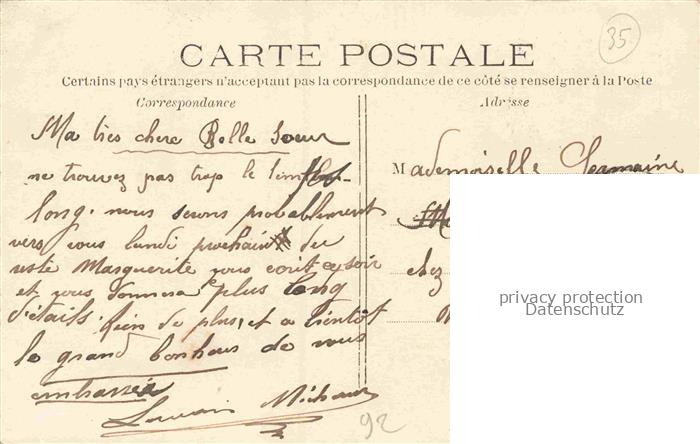 35
CARTE POSTALE
Certains pays étrangers n'acceptent pas la correspondance de ce côté se renseigner à la Poste
Correspondance
Adresse
Ma très chere Belle Soeur
ne trouvez pas trop le temps
long. nous serons probablement
vers vous lundi prochain du
reste Marguerite vous ecrit ce soir
et vous donnera plus long
détails. Rien de plus, et a bientôt
le grand bonheur de vous
embrasser
Michaux
92
Mademoiselle Germaine
chez
privacy protection
Datenschutz